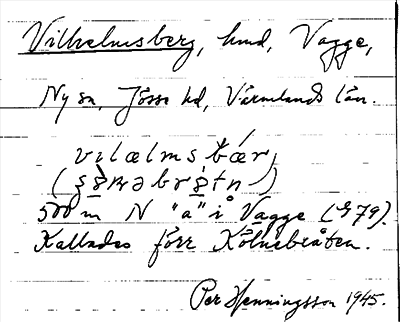 Vilhelmsberg, hmd, Vagge,
Ny sn, Jösse hd, Värmlands län.
vilælmsbær,
500 m N "a" i Vagge (G 79).
Kallades förr Kölnebråten.
Per Henningsson 1945.